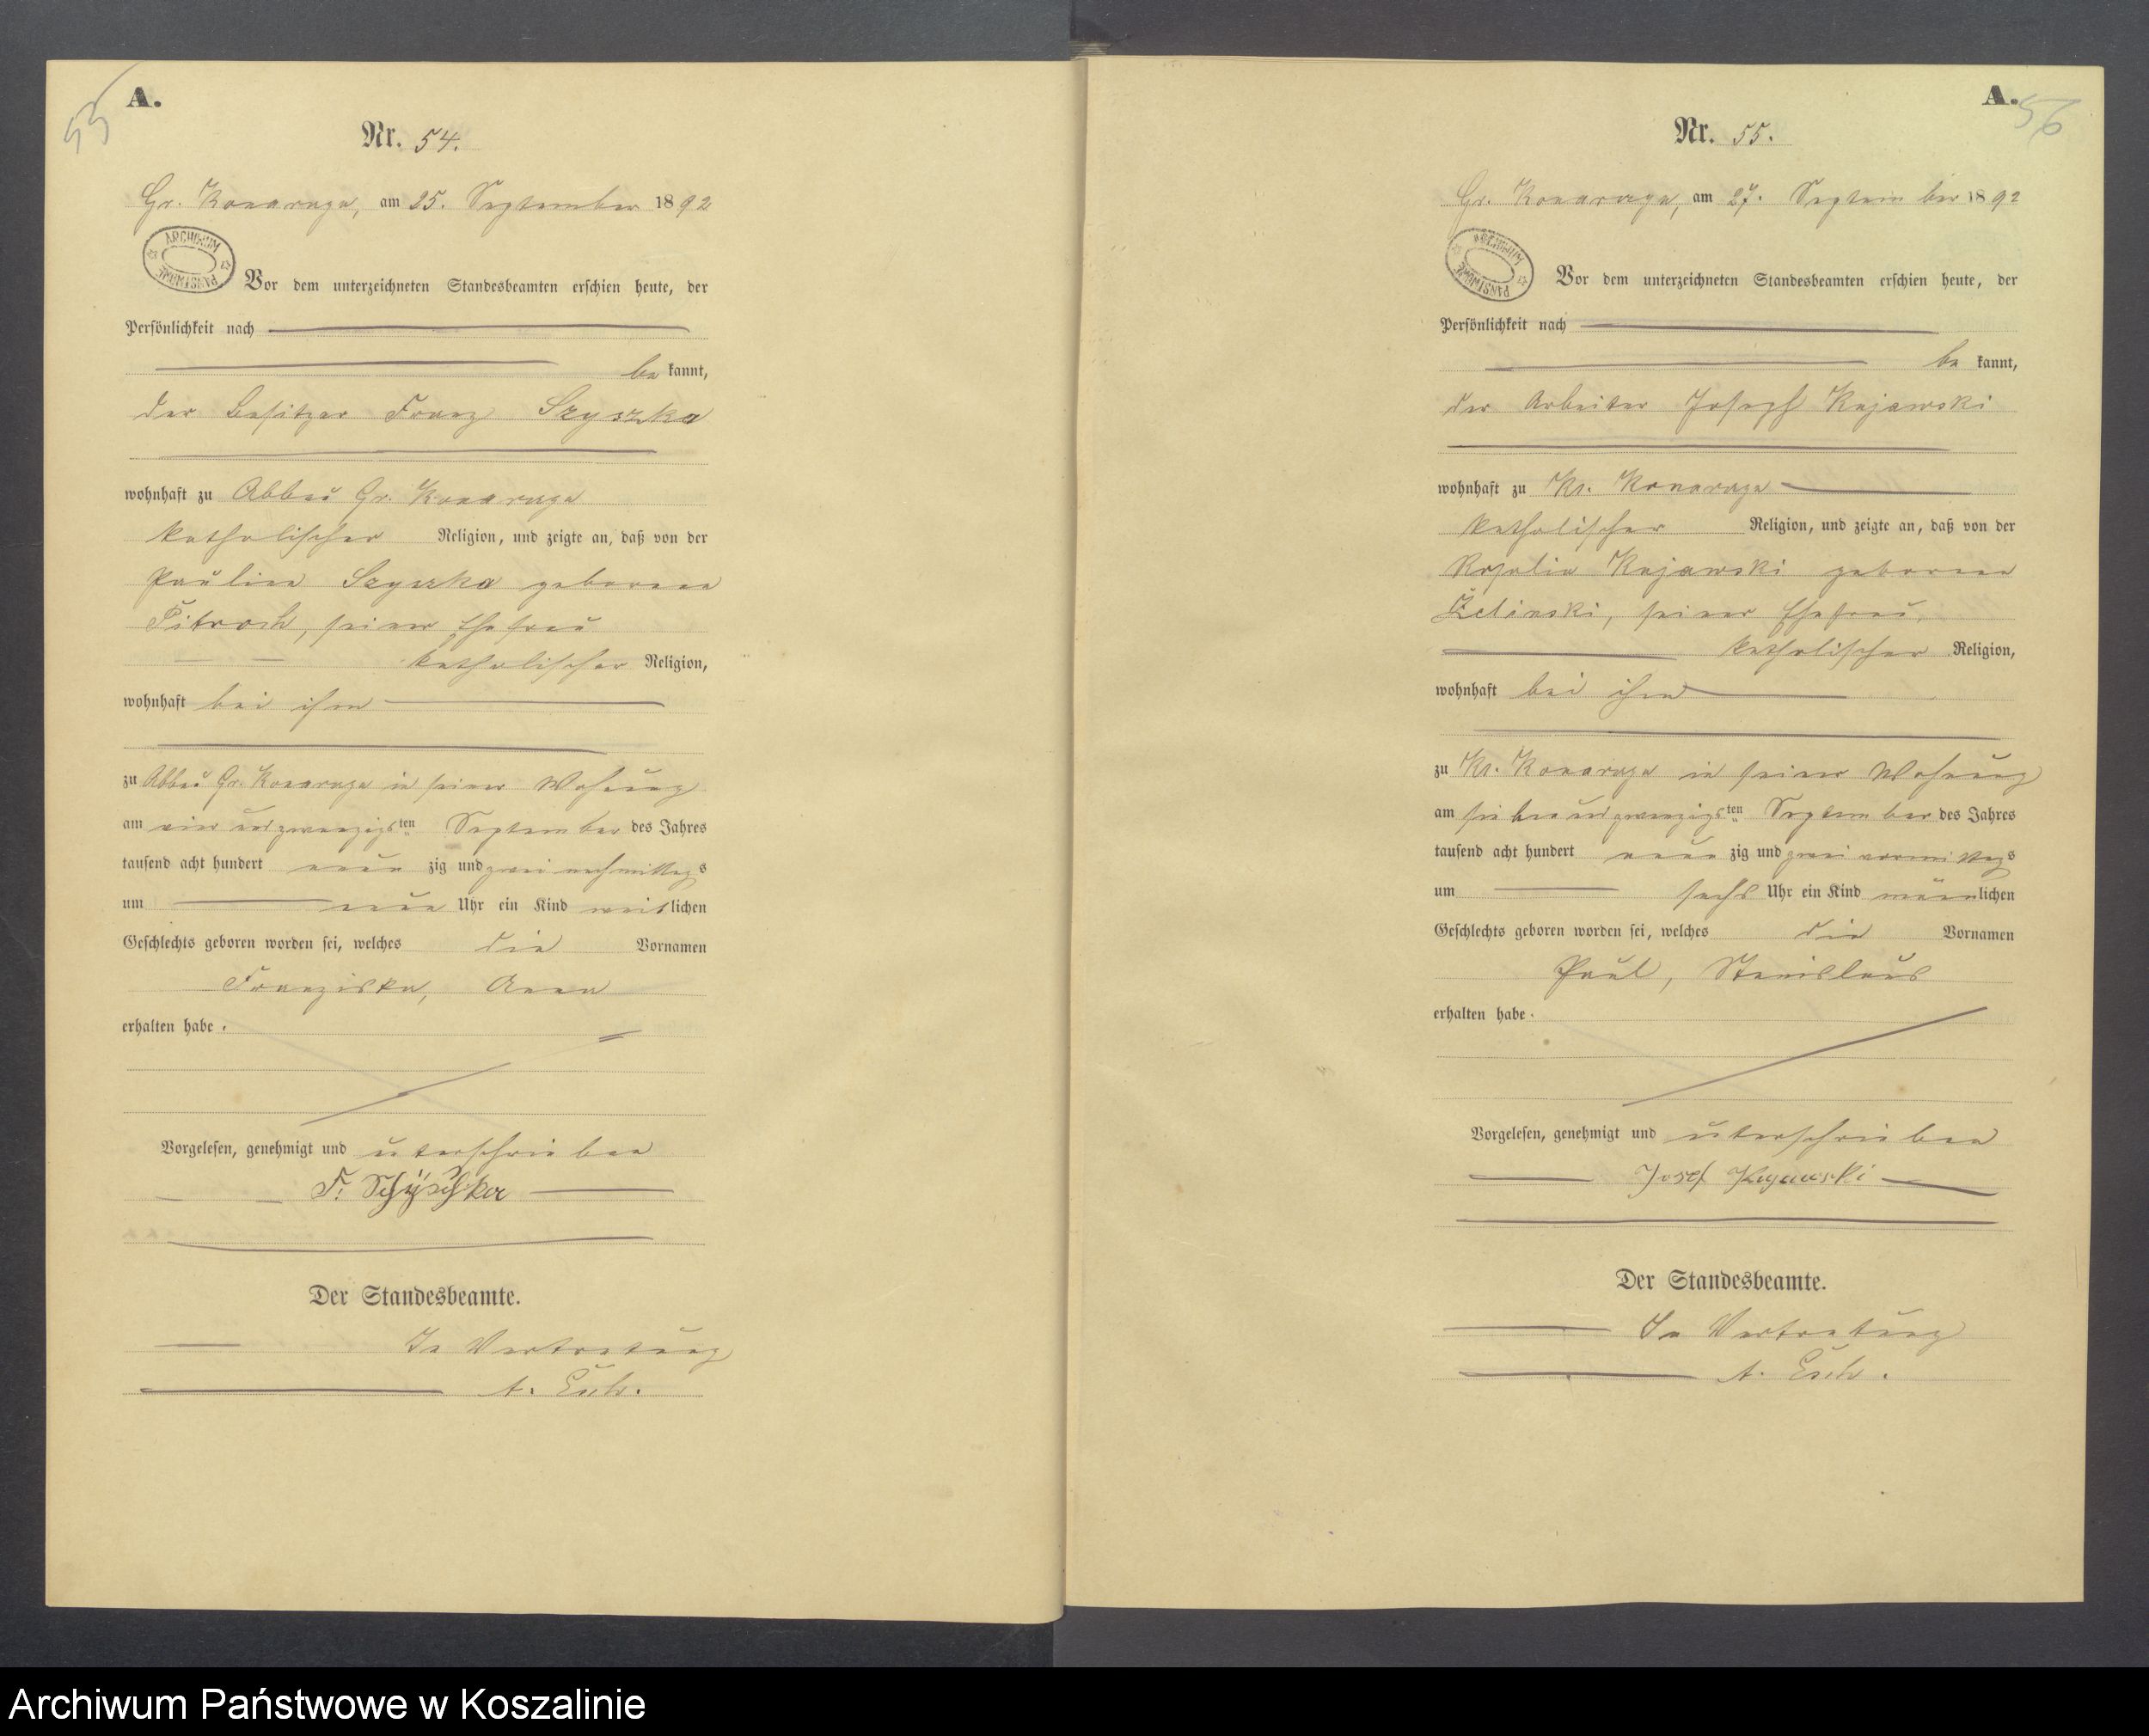 55
A.
Nr. 54.
Gr. Konarzyn, am 25. September 1892
ARCHIWUM PAŃSTWOWE
Vor dem unterzeichneten Standesbeamten erschien heute, der
Persönlichkeit nach
be kannt,
der Besitzer Franz Szyszka
wohnhaft zu Abbau Gr. Konarzyn
katholischer Religion, und zeigte an, daß von der
Pauline Szyszka geborene
seiner Ehefrau
katholischer Religion,
wohnhaft bei ihm
zu Abbau Gr. Konarzyn in seiner Wohnung
am vier und zwanzigsten September des Jahres
tausend acht hundert neun zig und zwei nachmittags
um neun Uhr ein Kind weiblichen
Geschlechts geboren worden sei, welches die Vornamen
Franziska, Anna
erhalten habe.
Vorgelesen, genehmigt und unterschrieben
F. Schyschka
Der Standesbeamte.
In Vertretung
A.
A.
56
Nr. 55.
Gr. Konarzyn, am 27. September 1892
ARCHIWUM PAŃSTWOWE
Vor dem unterzeichneten Standesbeamten erschien heute, der
Persönlichkeit nach
be kannt,
der Arbeiter Joseph Kujawski
wohnhaft zu Kl. Konarzyn
katholischer Religion, und zeigte an, daß von der
Rosalie Kujawski geborene
Zelinski, seiner Ehefrau,
katholischer Religion,
wohnhaft bei ihm
zu Kl. Konarzyn in seiner Wohnung
am sieben und zwanzigsten September des Jahres
tausend acht hundert neun zig und zwei vormittags
um sechs Uhr ein Kind männlichen
Geschlechts geboren worden sei, welches die Vornamen
Paul, Stanislaus
erhalten habe.
Vorgelesen, genehmigt und unterschrieben
Josef Kujawski
Der Standesbeamte.
In Vertretung
A.
Archiwum Państwowe w Koszalinie